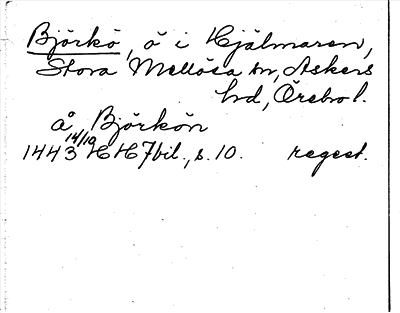 Björkö, ö i Hjälmaren,
Stora Mellösa sn, Askers
hd, Örebro l.
å Björkön
1443 14/10 HH 7 bil., s. 10. regest.